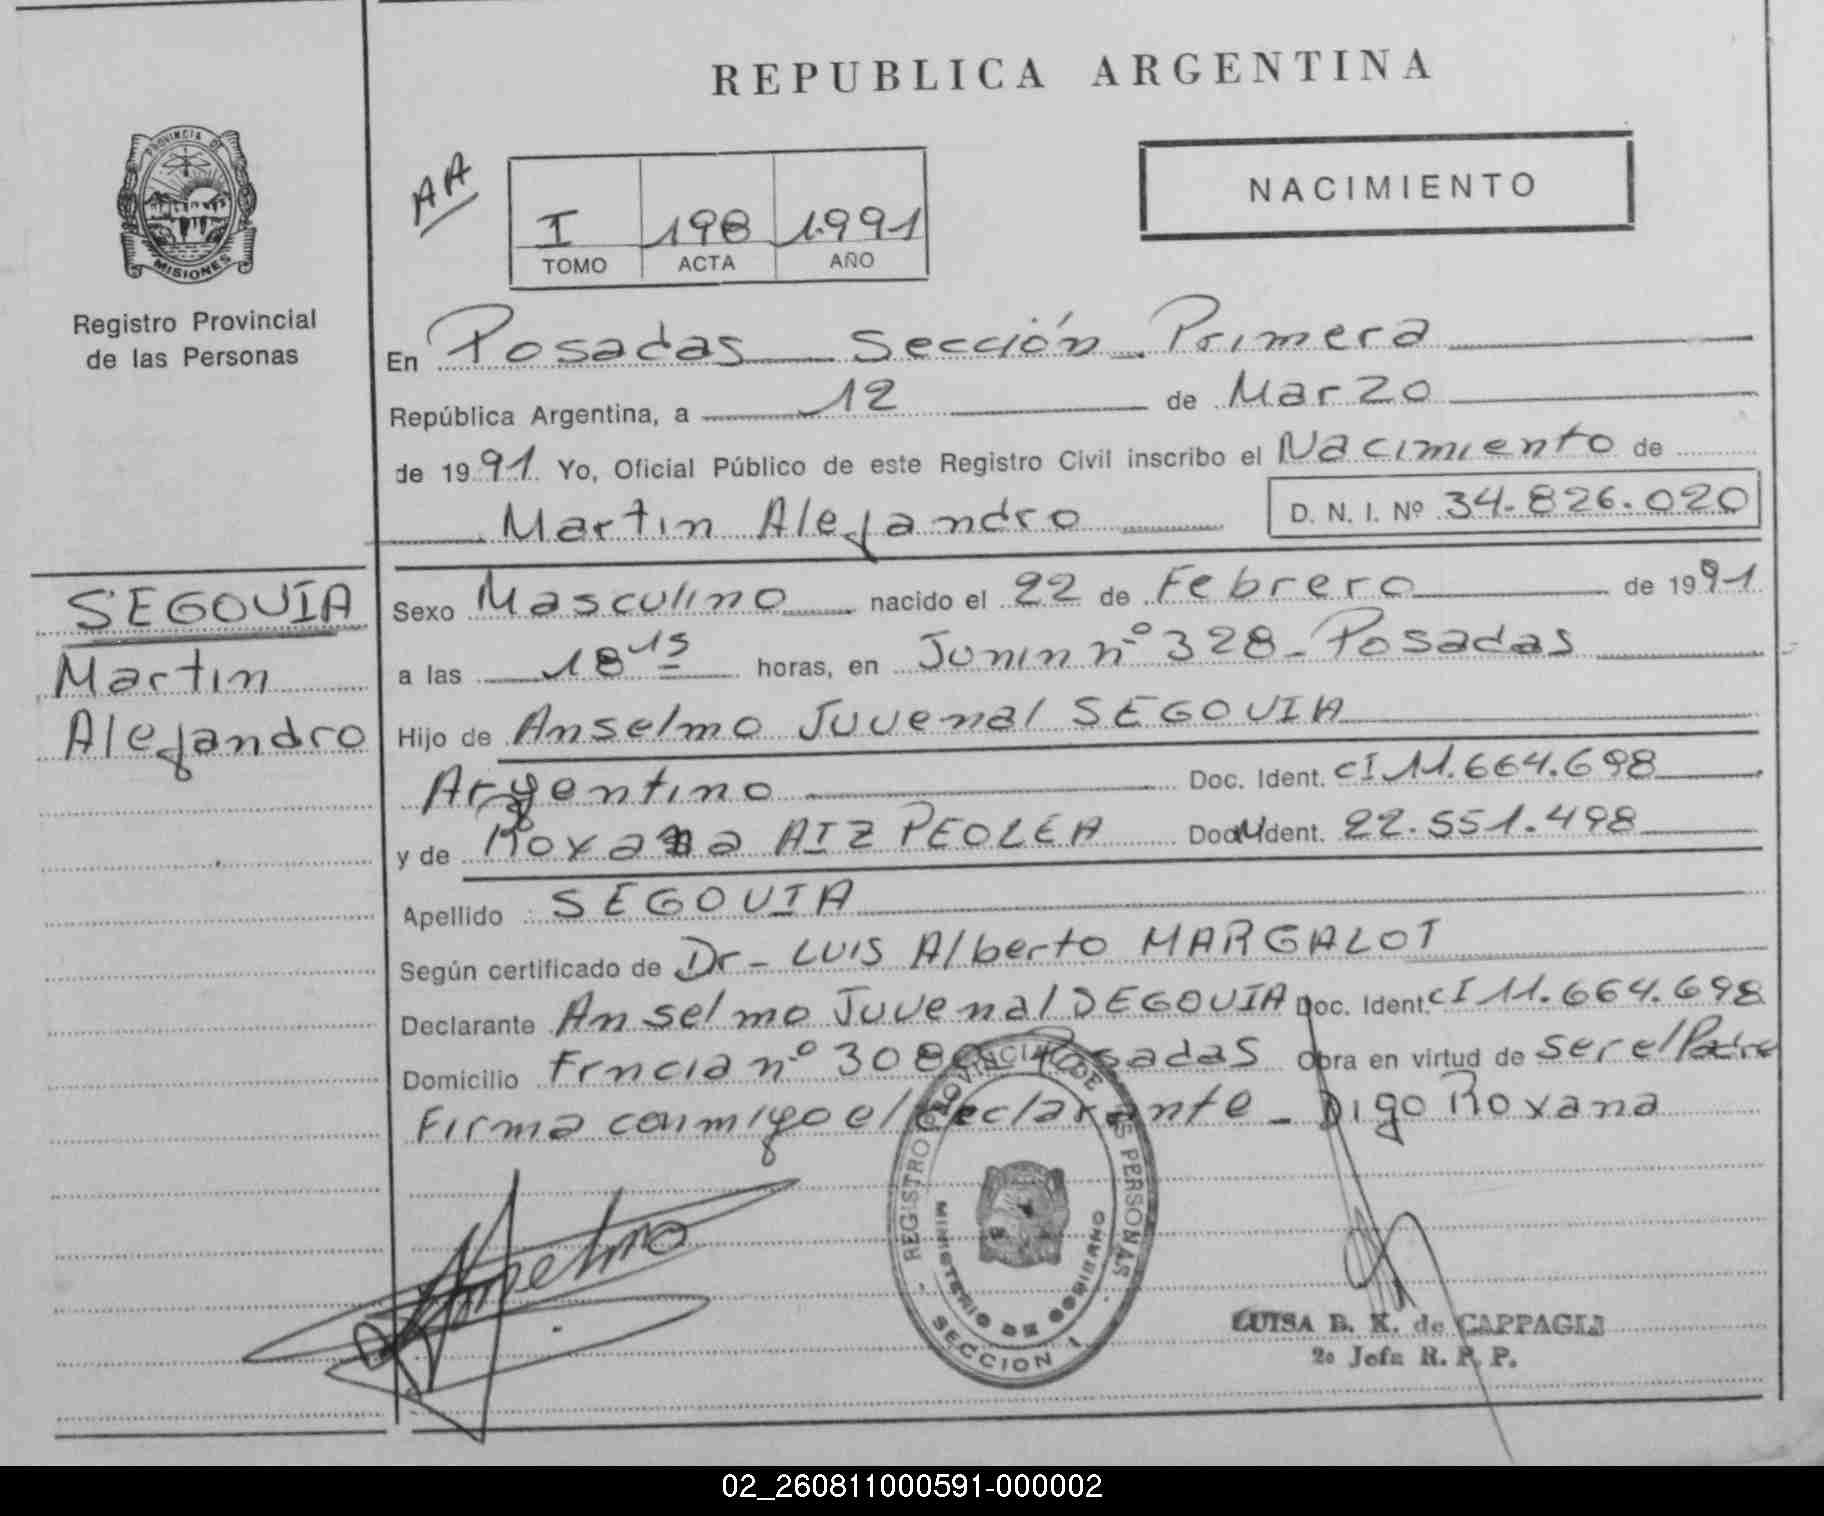 REPUBLICA ARGENTINA
PROVINCIA DE
MISIONES
Registro Provincial
de las Personas
AA
I 198 1991
TOMO ACTA AÑO
NACIMIENTO
En Posadas Sección Primera
República Argentina, a 12 de Marzo
de 1991 Yo, Oficial Público de este Registro Civil inscribo el Nacimiento de
Martin Alejandro D. N. I. Nº 34.826.020
SEGOVIA
Martin
Alejandro
Sexo Masculino nacido el 22 de Febrero de 1991
a las 18 15 horas, en Junin nº 328 - Posadas
Hijo de Anselmo Juvenal SEGOVIA
Argentino Doc. Ident. CI 11.664.698
y de Roxana AIZPEOLEA Doc. Ident. 22.551.498
Apellido SEGOVIA
Según certificado de Dr - LUIS Alberto MARGALOT
Declarante Anselmo Juvenal SEGOVIA Doc. Ident. CI 11.664.698
Domicilio Frncia nº Posadas Obra en virtud de ser el Padre
Firma conmigo el declarante - Digo Roxana
Anselmo
REGISTRO PROVINCIAL DE LAS PERSONAS
MINISTERIO DE GOBIERNO
SECCION 1
LUISA B. K. de CAPPAGLI
2º Jefa R. P. P.
02_260811000591-000002